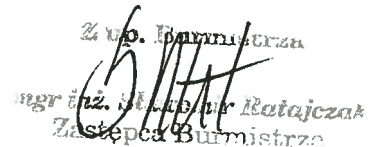 Z up. Burmistrza
mgr inż. Sławomir Ratajczak
Zastępca Burmistrza